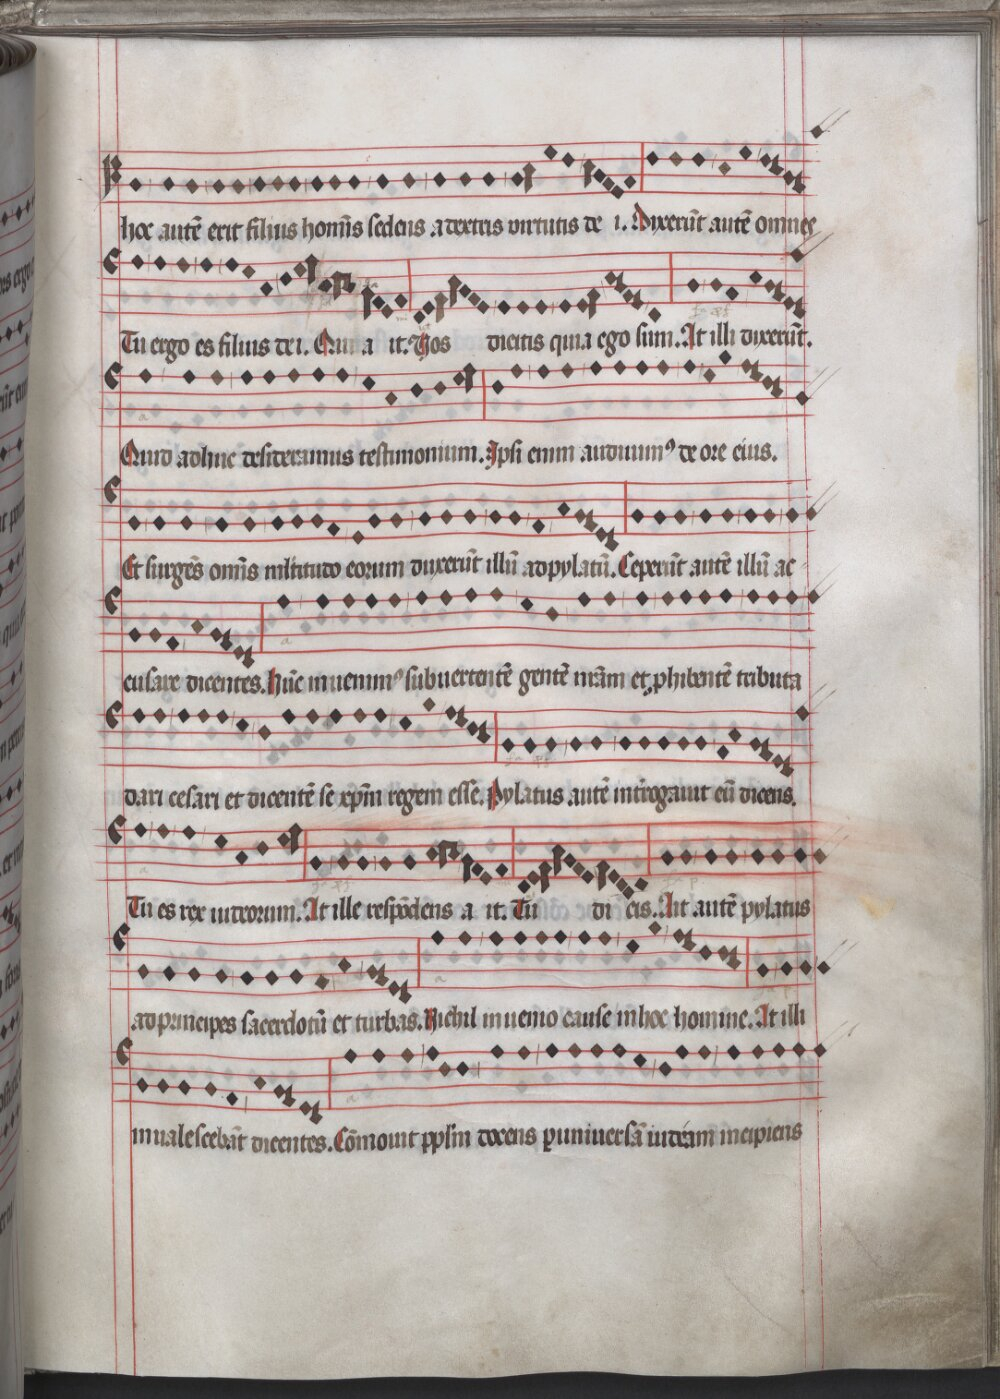 hoc autē erit filius homīs sedens a dextris virtutis de i. Dixerūt autē omnes
Tu ergo es filius dei. Qui a it. Vos dicitis quia ego sum. At illi dixerūt.
Quid adhuc desideramus testimonium. Ipsi enim audiuimꝰ de ore eius.
Et surgēs omīs mltitudo eorum duxerūt illū ad pylatū. Ceperūt autē illū ac
cusare dicentes. Hūc inuenimꝰ subuertentē gentē nrām et ꝓhibentē tributa
dari cesari et dicentē se xp̄m regem esse. Pylatus autē int̄rogauit eū dicens.
Tu es rex iudeorum. At ille respōdens a it. Tu di cis. Ait autē pylatus
ad principes sacerdotū et turbas. Nichil inuenio cause in hoc homine. At illi
inualescebāt dicentes. Cōmouit pplm docens ꝑ uniuersā iudeam incipiens